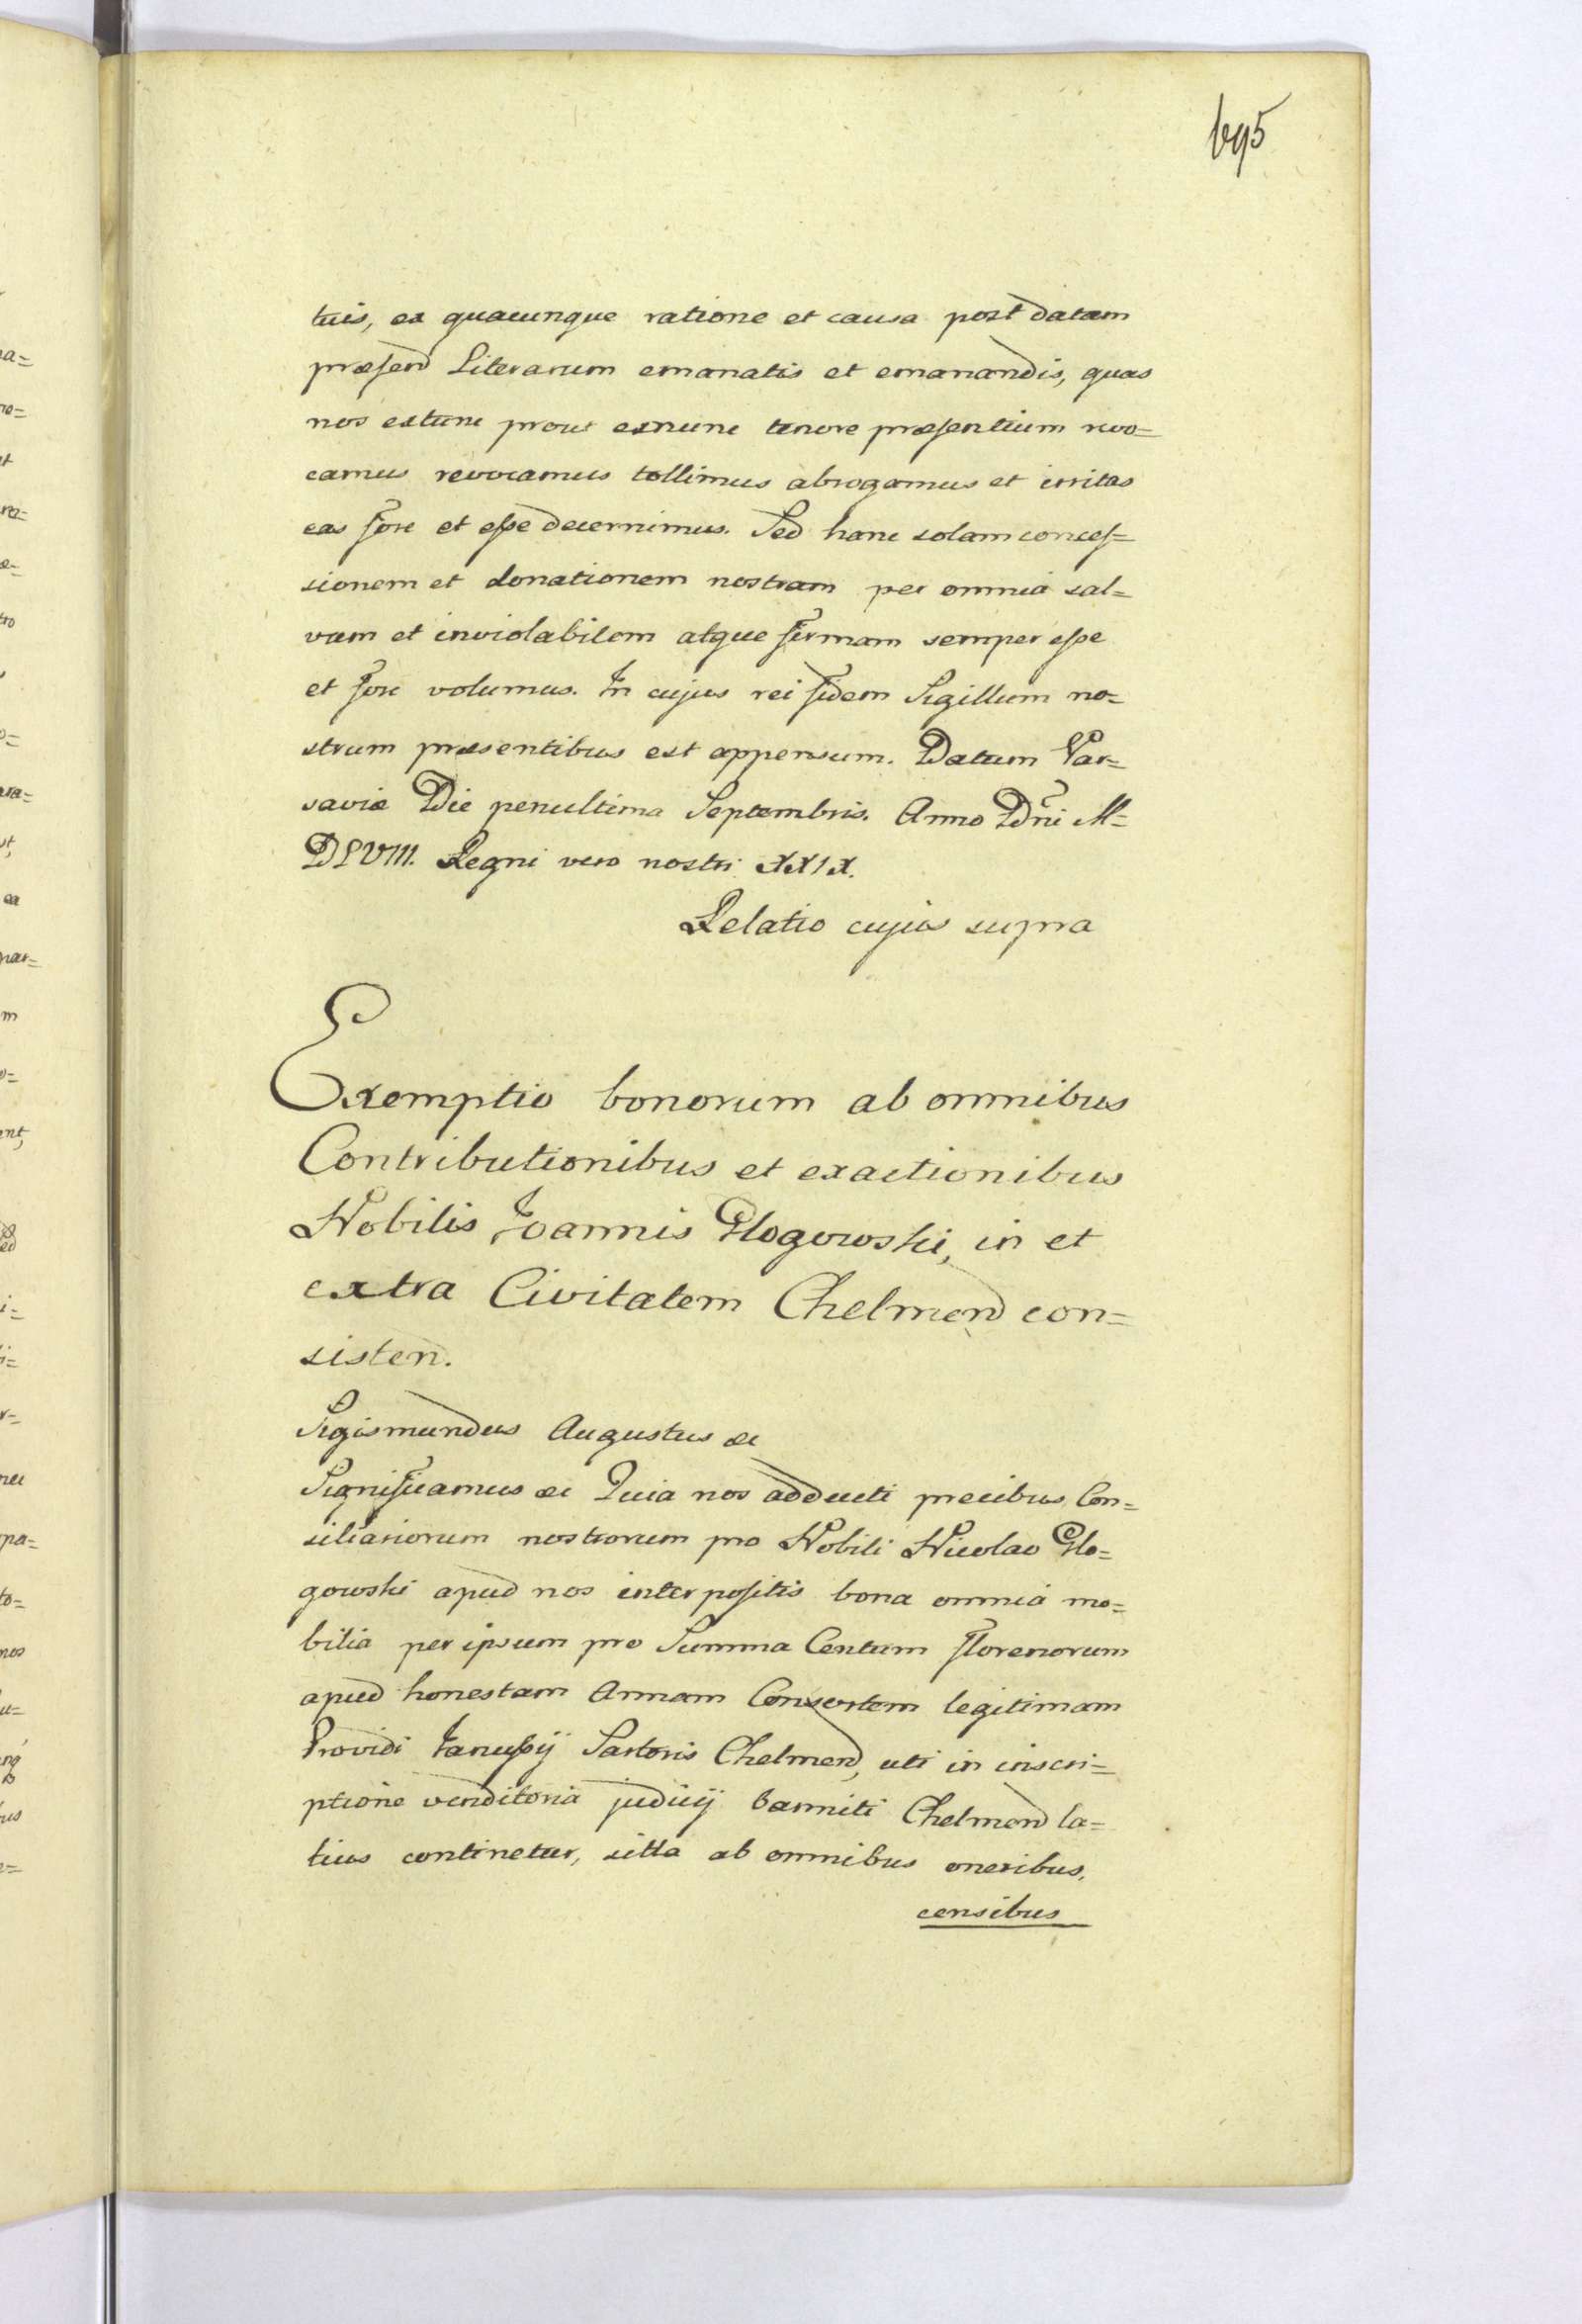 695
tuis, ex quacunque ratione et causa post datam
præsend Literarum emanatis et emanandis, quas
nos extunc prout exnunc tenore præsentium revo=
camus revocamus tollimus abrogamus et irritas
eas fore et esse decernimus. Sed hanc solam conces=
sionem et donationem nostram per omnia sal=
vam et inviolabilem atque firmam semper esse
et fore volumus. In cujus rei fidem Sigillum no=
strum præsentibus est appensum. Datum Var=
saviæ Die penultima Septembris. Anno Dni M=
DLVIII. Regni vero nostri XXIX.
Relatio cujus supra
Exemptio bonorum ab omnibus
Contributionibus et exactionibus
Nobilis Joannis Glogowski, in et
extra Civitatem Chelmen con=
sisten.
Sigismundus Augustus &c
Significamus &c Quia nos adducti precibus Con=
siliariorum nostrorum pro Nobili Nicolao Glo=
gowski apud nos interpositis bona omnia mo=
bilia per ipsum pro Summa Centum florenorum
apud honestam Annam Consortem legitimam
Providi Janussij Sartoris Chelmen, uti in inscri=
ptione venditoria judicij banniti Chelmen la=
tius continetur, sitta ab omnibus oneribus,
censibus